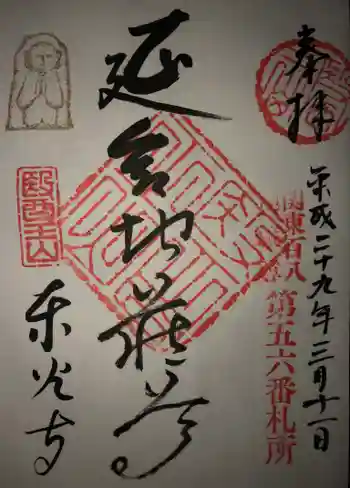 奉拝
平成二十九年三月十一日
関東百八
第五六番札所
延命地蔵尊
医王山
東光寺